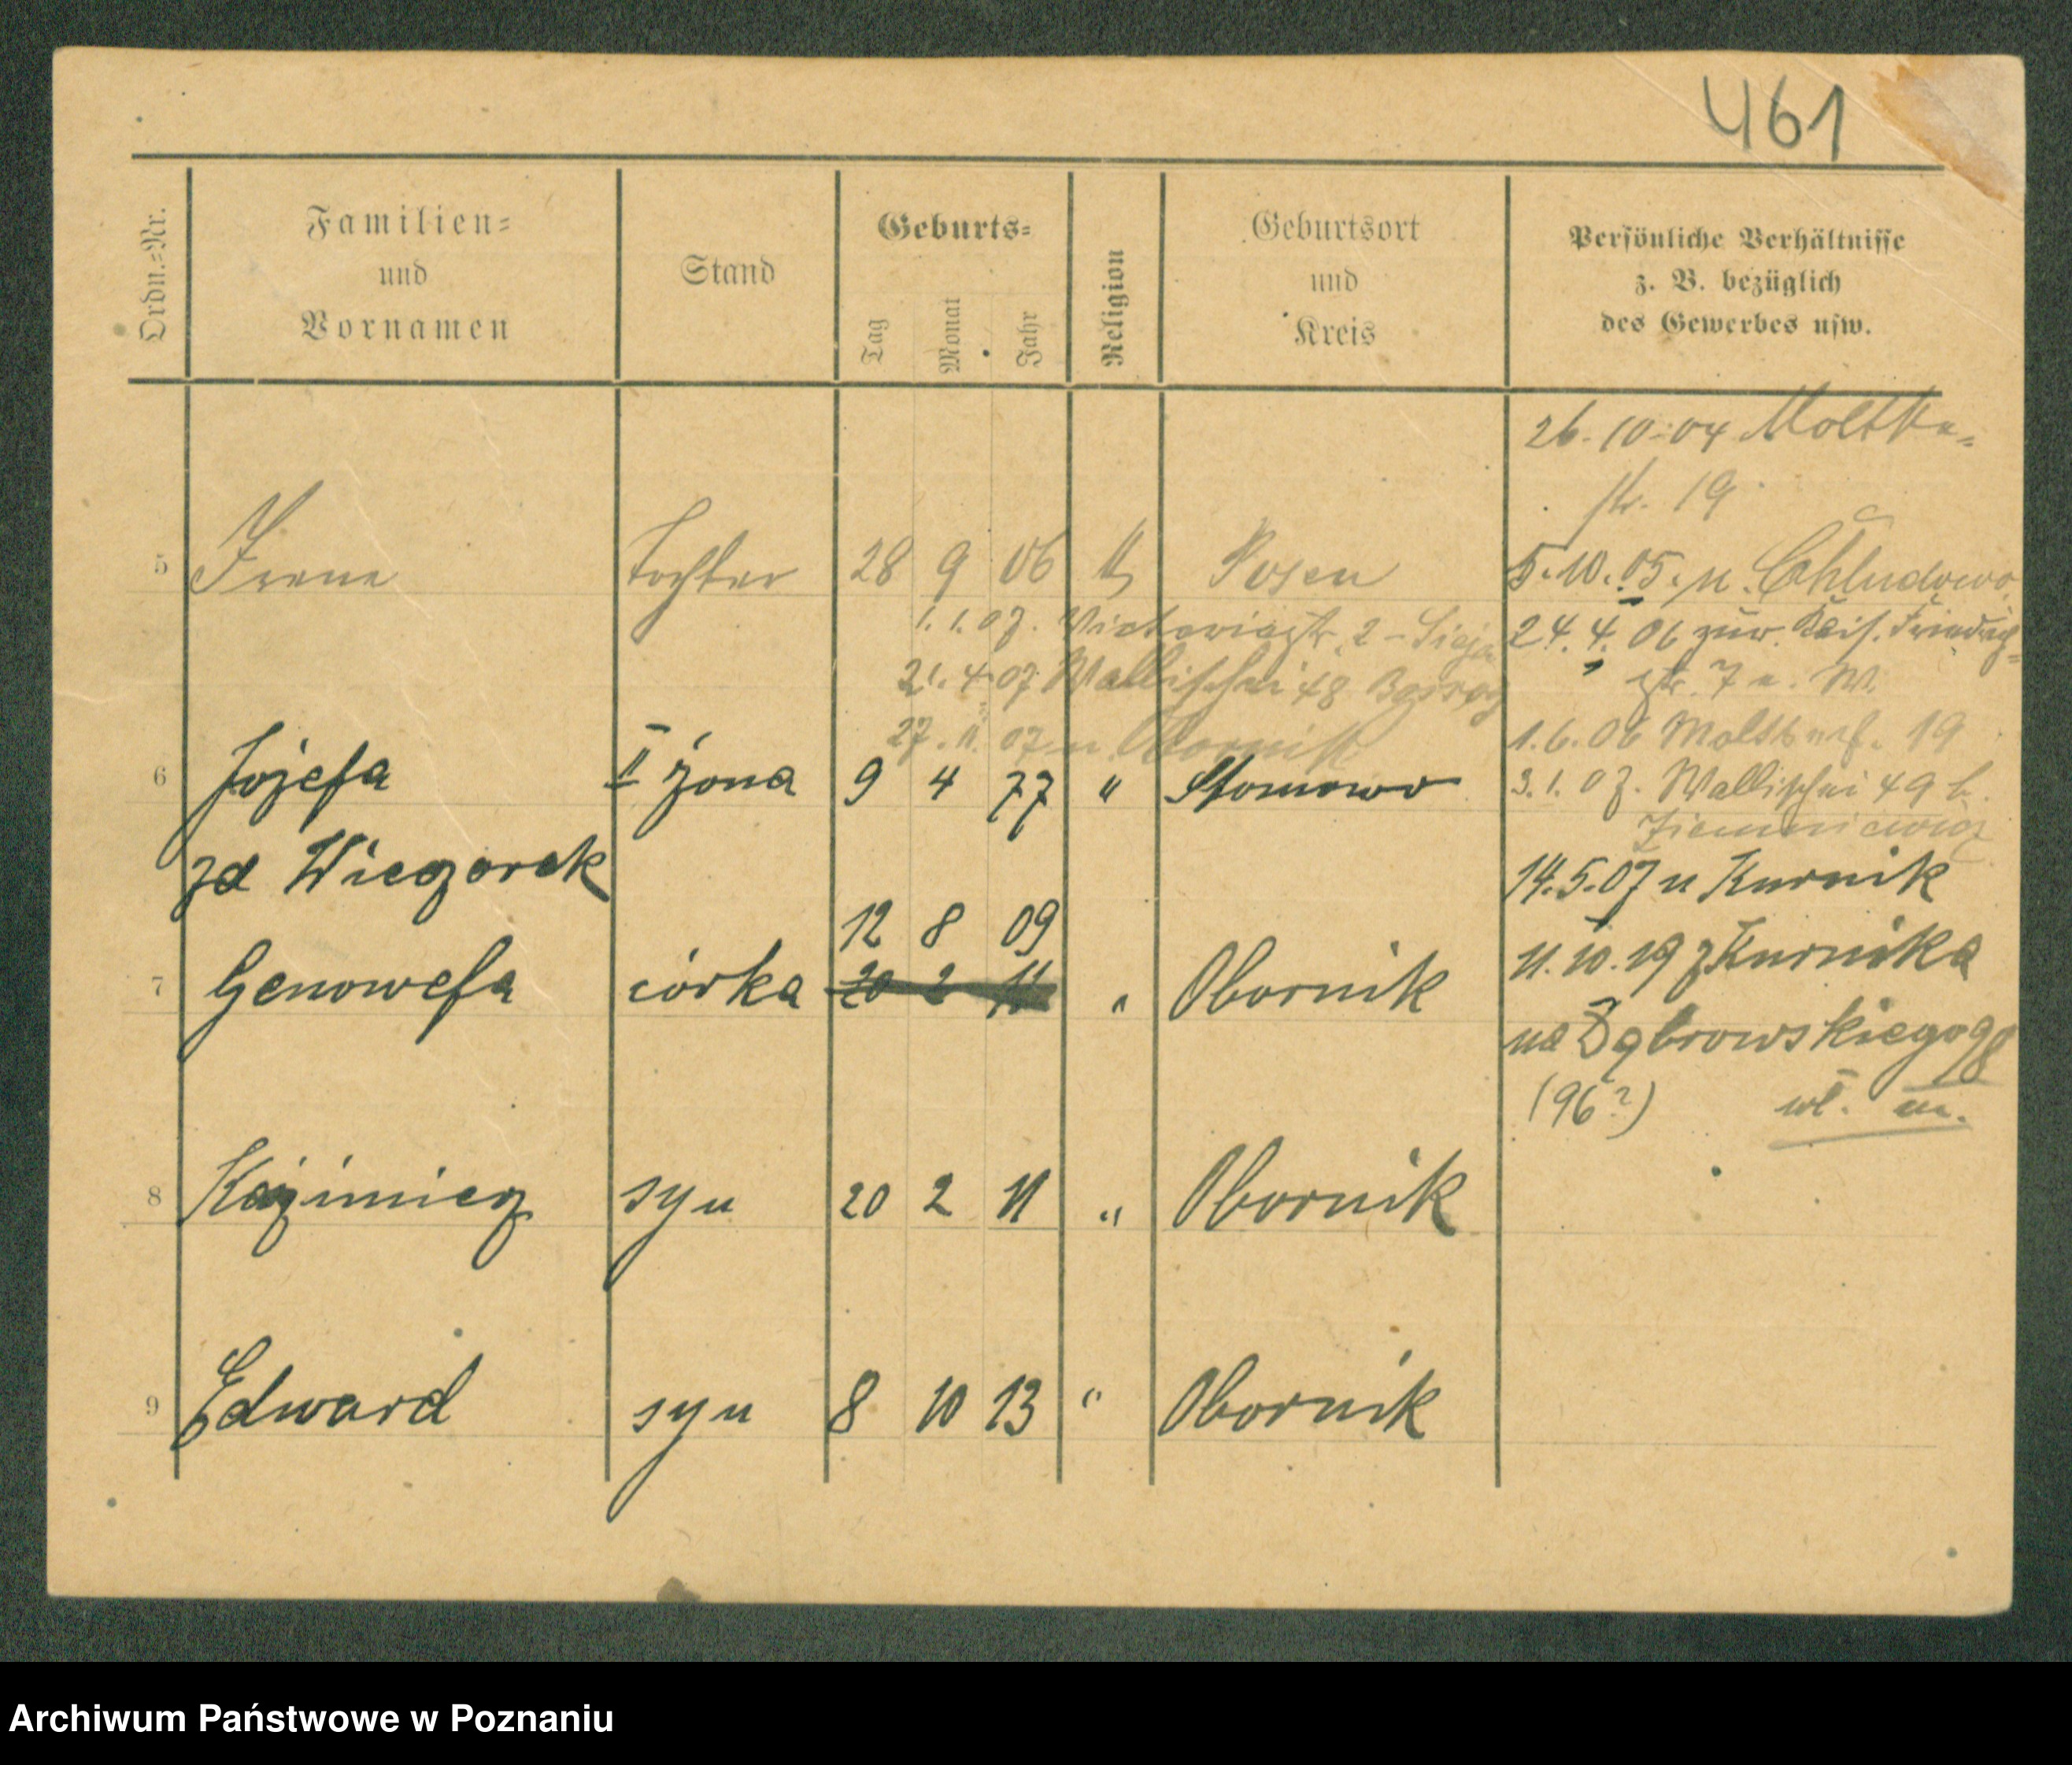 461
Ordn.-Nr.
Familien-
und
Vornamen
Stand
Geburts-
Tag
Monat
Jahr
Religion
Geburtsort
und
Kreis
Persönliche Verhältnisse
z. B. bezüglich
des Gewerbes usw.
26.10.04 Moltke-
str. 19
5 Irene Tochter 28 9 06 Posen
5.10.05. n. Chludowo
1.1.07. Victoriastr. 2 -
24.4.06 zur. Kais. Friedrich-
21.4.07 Wallischei 48
str. 7 a. W.
27.11.07 n Obornik
1.6.06 19
6 Józefa II żona 9 4 77 " Słomowo
3.1.07. Wallischei 49 b.
zd Wieczorek
14.5.07 n Kurnik
12 8 09
7 Genowefa córka 20 2 11 " Obornik
11.10.19 z Kurnika
na Dąbrowskiego 98
(96?) wł. m.
8 Kazimierz syn 20 2 11 " Obornik
9 Edward syn 8 10 13 " Obornik
Archiwum Państwowe w Poznaniu